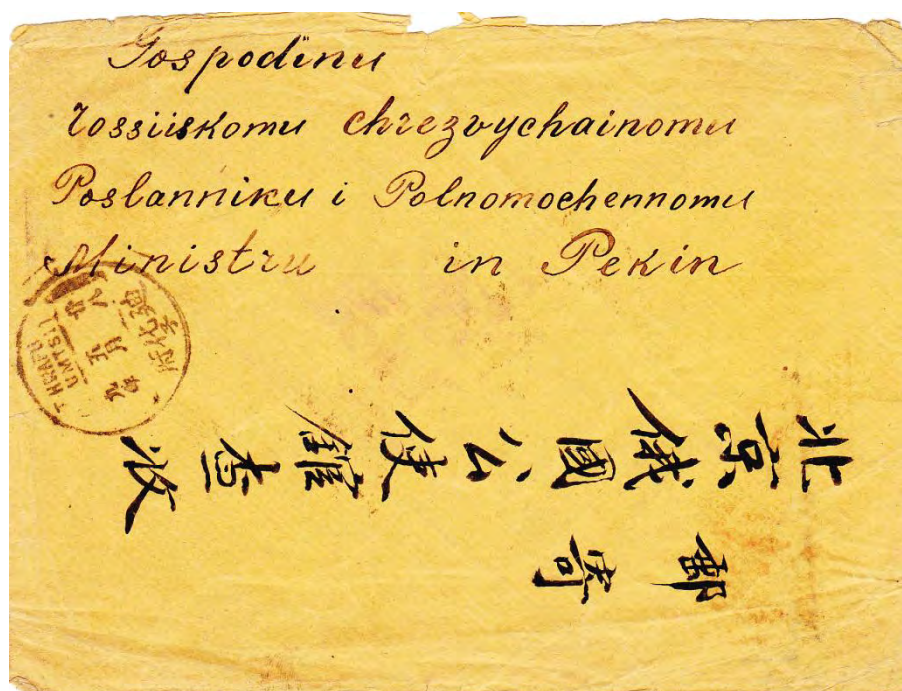 Gospodinu
rossiiskomu chrezvychainomu
Poslanniku i Polnomochennomu
Ministru in Pekin
迪化府
北京俄國公使館查收
郵寄